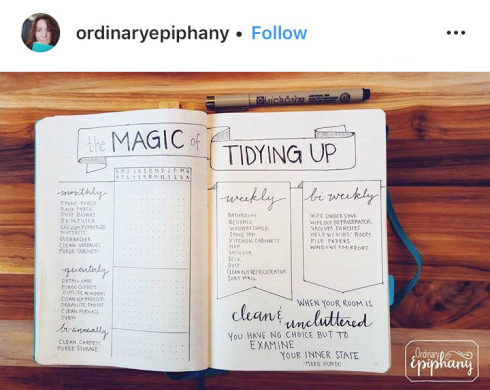 ordinaryepiphany • Follow
MICRON 02
the MAGIC of
TIDYING UP
A M J J A S O N D J F M
monthly
FRONT PORCH
BACK PORCH
DUST BLINDS
VACUUM FURNITURE
MATTRESS
DISHWASHER
CLEAN GARBAGES
PURGE CABINETS
quarterly
DETAIL CARS
PURGE CLOSETS
OUTSIDE WINDOWS
CLEAN OUT FREEZER
ORGANIZE PANTRY
CLEAN FURNACE
OVEN
bi-annually
CLEAN CARPETS
PURGE STORAGE
weekly
BATHROOM
BEDDING
WASHER/DRYER
STOVE TOP
KITCHEN CABINETS
MOP
VACUUM
DESK
DUST
CLEAN OUT REFRIGERATOR
SORT MAIL
bi-weekly
WIPE UNDER SINK
WIPE OUT REFRIGERATOR
VACUUM PORCHES
HELP W/ KIDS' ROOM
FILE PAPERS
WINDOWS & MIRRORS
WHEN YOUR ROOM IS
clean & uncluttered
YOU HAVE NO CHOICE BUT TO
EXAMINE
YOUR INNER STATE
-MARIE KONDO
Ordinary
Epiphany